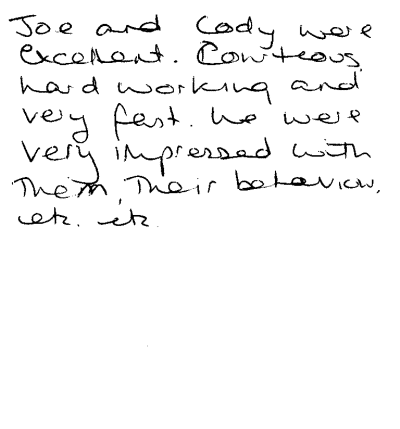 Joe and Cody were
excellent. Courteous,
hard working and
very fast. We were
very impressed with
Them, Their behaviour,
etc. etc.